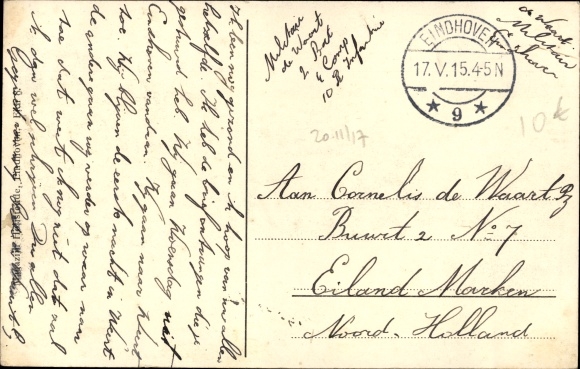 Ik ben nog gezond en ik hoop van u allen
hetzelfde. Ik heb de brief ontvangen die je
gestuurd heb. Wij gaan Woensdag uit
Eindhoven vandaan. Wij gaan naar Weert
toe. Wij blijven de eerste nacht in Weert
de andere gaan wij verder op waar naar
toe dat weet ik nog niet dat zal
ik dan wel schrijven. Dus allen
Militair
de Waart
2 Bat
4 Comp
10 R Infanterie
de Waart
Militair
Eindhoven
EINDHOVEN
17.V.15.4-5N
9
20.11/17
10
Aan Cornelis de Waart Pz
Buurt 2 No 7
Eiland Marken
Noord-Holland
Eindhoven, 1915